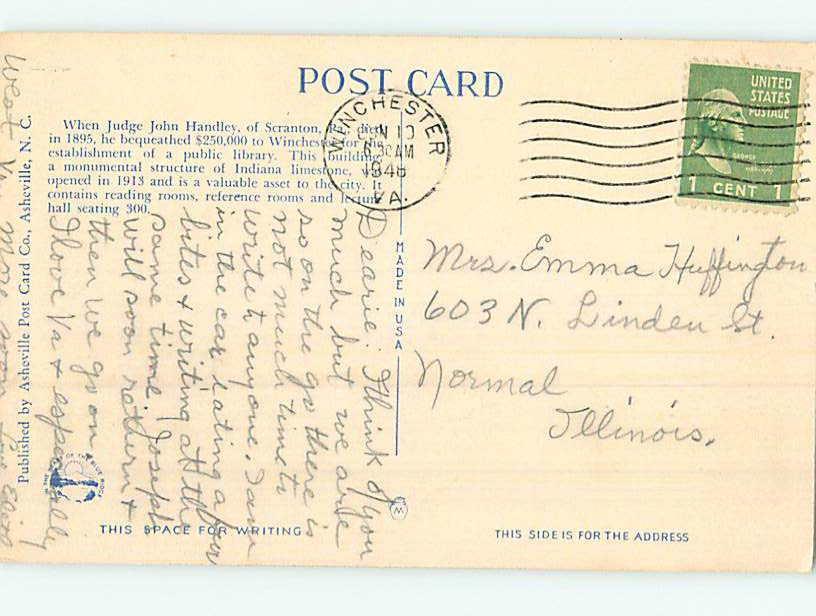 POST CARD
When Judge John Handley, of Scranton, Pa., died
in 1895, he bequeathed $250,000 to Winchester for the
establishment of a public library. This building,
a monumental structure of Indiana limestone, was
opened in 1913 and is a valuable asset to the city. It
contains reading rooms, reference rooms and lecture
hall seating 300.
WINCHESTER
10
AM
VA.
UNITED
STATES
POSTAGE
1 CENT 1
Published by Asheville Post Card Co., Asheville, N. C.
MADE IN USA
Dearie: I think of you
much but we are
so on the go there is
not much time to
write to anyone. I am
in the car eating a few
bites & writing at the
same time. Joseph
will soon return &
then we go on
I love Va & especially
West Va
more soon Love
Mrs. Emma Huffington
603 N. Linden St.
Normal
Illinois.
THIS SPACE FOR WRITING
THIS SIDE IS FOR THE ADDRESS